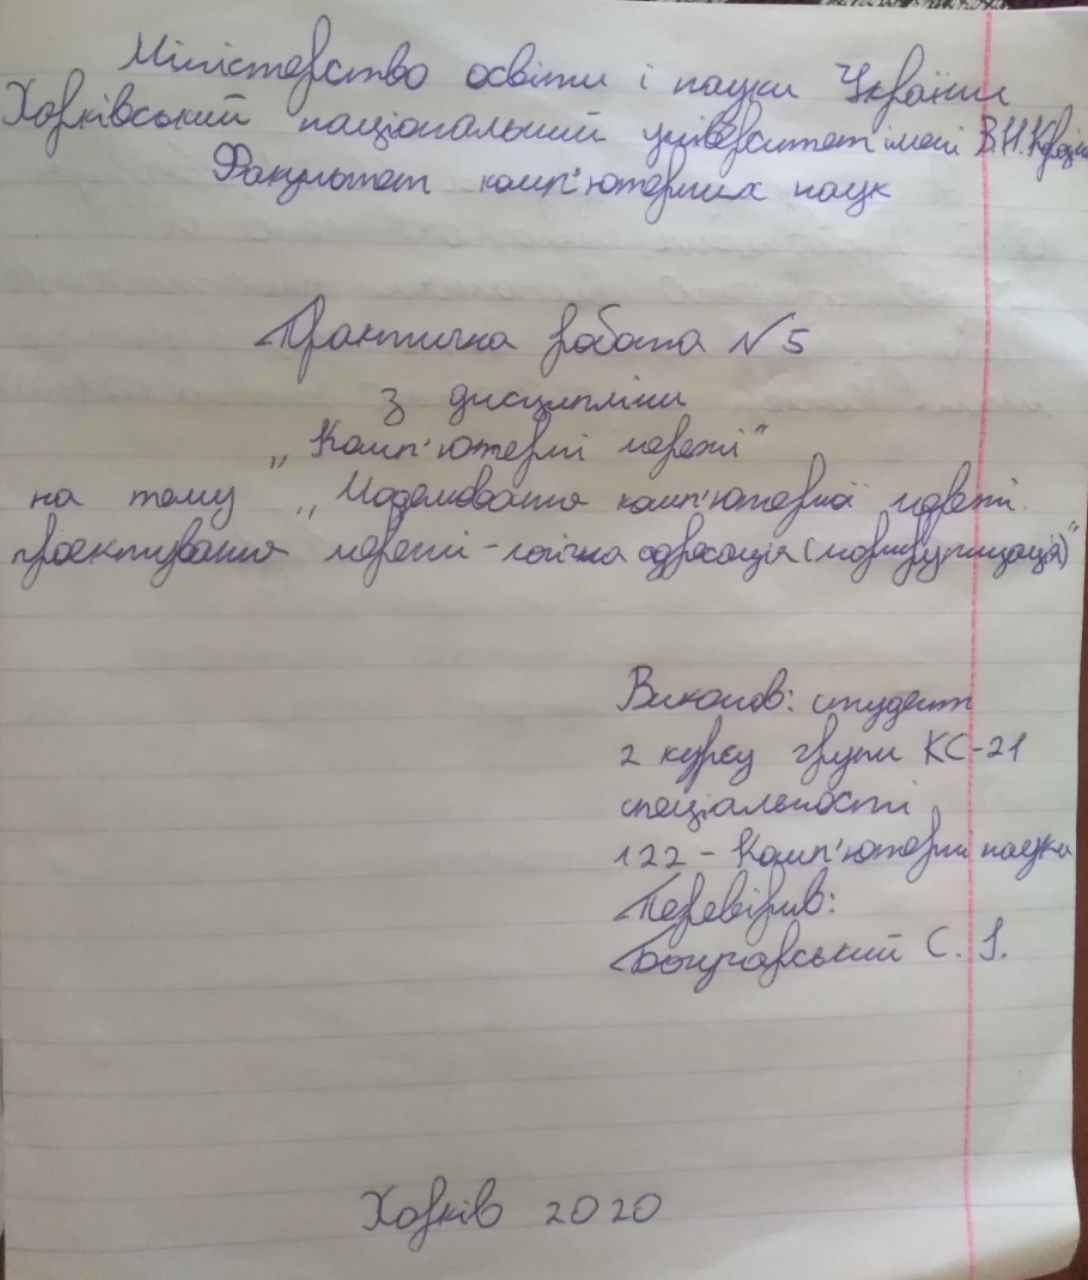 Міністерство освіти і науки України
Харківський національний університет імені В.Н.
Факультет комп'ютерних наук
Практична робота №5
з дисципліни
„Комп'ютерні мережі"
на тему „Моделювання комп'ютерної мережі.
проектування мережі - логічна адресація (маршрутизація)"
Виконав: студент
2 курсу групи КС-21
спеціальності
122 - Комп'ютерні науки
Перевірив:
С. І.
Харків 2020